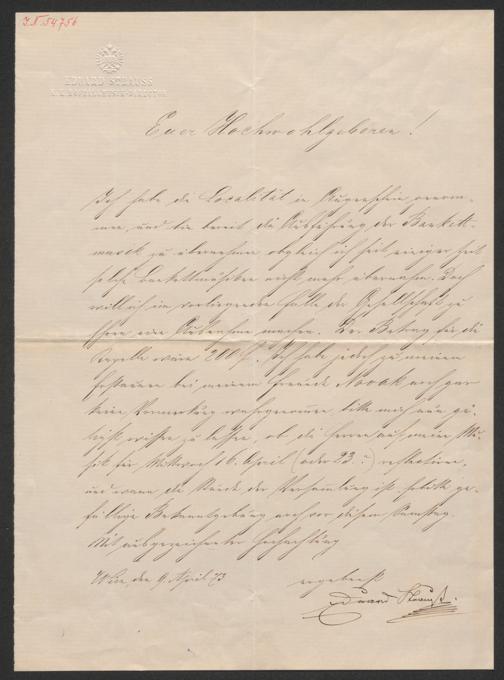 I.N. 54.756
EDUARD STRAUSS
K. K. HOFBALLMUSIK-DIRECTOR
Euer Hochwohlgeboren!
Ich habe die Localität in Augenschein genom-
men, und bin bereit die Ausführung der Bankett-
musik zu übernehmen obgleich ich seit einiger Zeit
solche Bankettmusiken nicht mehr übernahm. Doch
will ich im vorliegenden Falle der Gesellschaft zu
Ehren eine Ausnahme machen. Der Betrag für die
Capelle wäre 200 f. Ich habe jedoch zu meinem
Erstaunen bei meinem Freunde Novak noch gar
keine Vormerkung wahrgenommen, bitte mich nun gü-
tigst wissen zu lassen, ob die Herren auf meine Mu-
sik für Mittwoch 16. April (oder 23.?) reflectiren,
und wann die Stunde der Versammlung ist, erbitte ge-
fällige Bekanntgebung noch vor diesem Samstag.
Mit ausgezeichneter Hochachtung
Wien, den 9. April 73 ergebenst
Eduard Strauß.